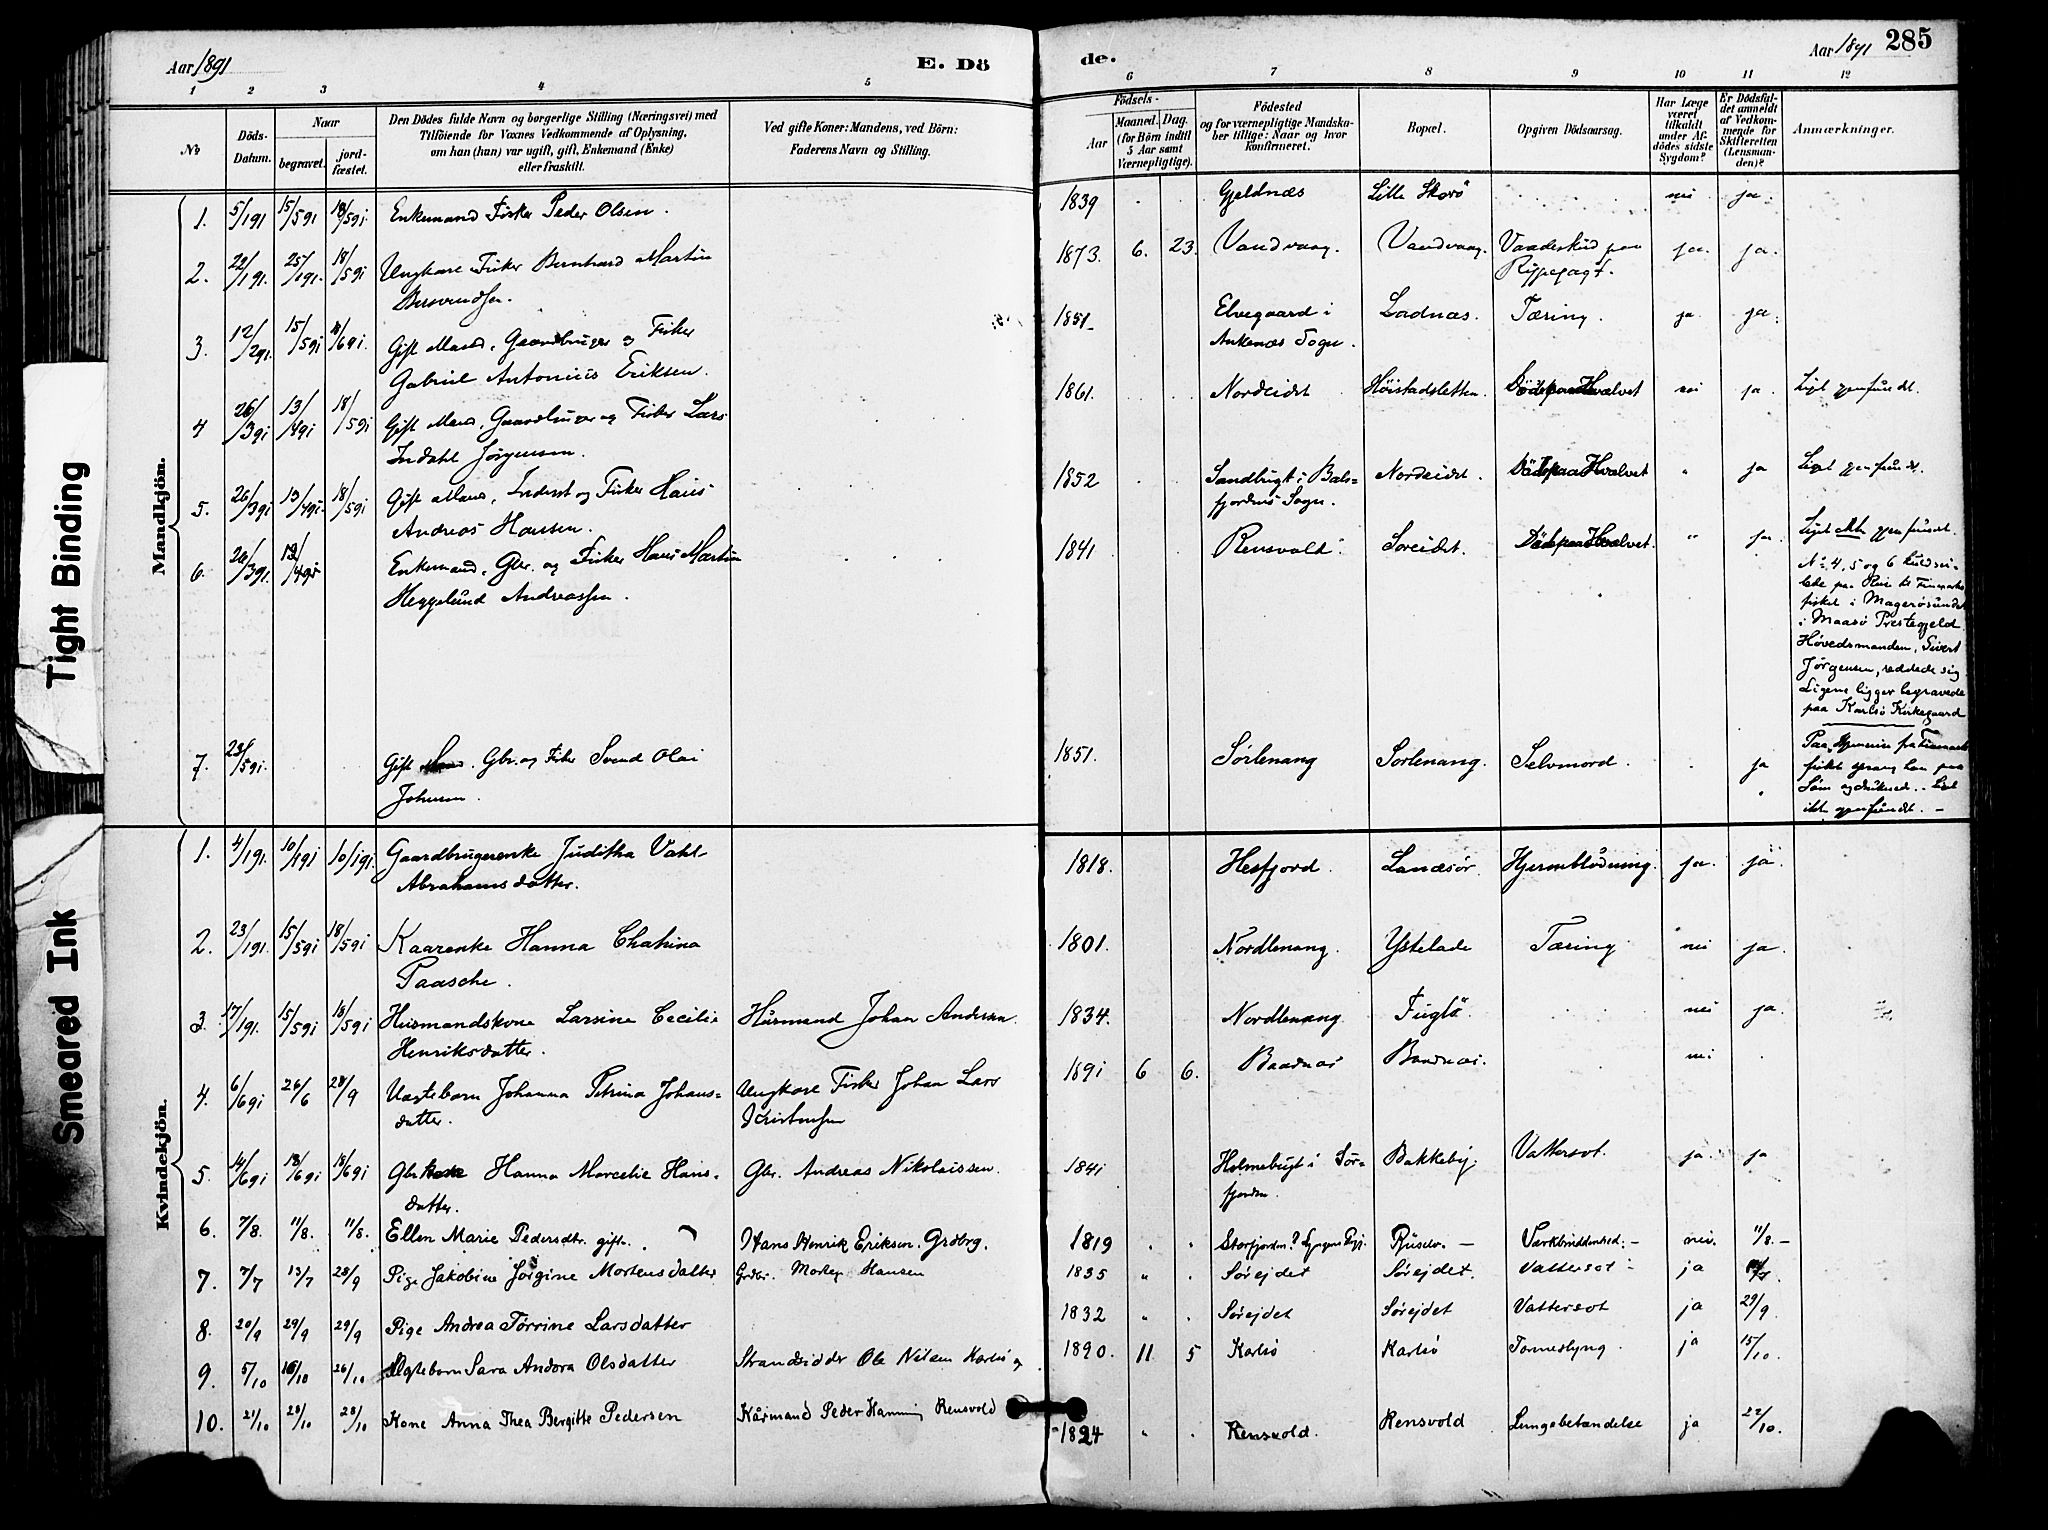 Aar 1891
E. Dö
de.
Aar 1891
285
1 2 3 4 5 6 7 8 9 10 11 12
No
Döds-Datum.
Naar
begravet.
jord-fæstet.
Den Dödes fulde Navn og borgerlige Stilling (Næringsvei) med
Tilföiende for Voxnes Vedkommende af Oplysning,
om han (hun) var ugift, gift, Enkemand (Enke)
eller fraskilt.
Ved gifte Koner: Mandens, ved Börn:
Faderens Navn og Stilling.
Födsels-
Aar
Maaned. Dag.
(for Börn indtil
5 Aar samt
Værnepligtige).
Födested
og for værnepligtige Mandska-
ber tillige: Naar og hvor
konfirmeret.
Bopæl.
Opgiven Dödsaarsag.
Har Læge
været
tilkaldt
under Af-
dödes sidste
Sygdom?
Er Dödsfal-
det anmeldt
af Vedkom-
mende for
Skifteretten
(Lensman-
den)?
Anmærkninger.
Tight Binding
Smeared Ink
Mandkjön.
1. 5/1 91 15/5 91 18/5 91. Enkemand Fisker Peder Olsen. 1839 Gjeldnæs Lille Skorö nei ja.
2. 22/1 91. 25/1 91. 18/5 91 Ungkarl Fisker Bernhard Martin 1873. 6. 23. Vandvaag. Vandvaag. Vaadeskud paa ja. ja.
Rypejagt.
3. 12/2 91. 15/5 91 /6 91. Gift Mand, Gaardbruger og Fisker 1851 Elvegaard i Ladnæs. Tæring. ja ja.
Gabriel Antonius Eriksen. Ankenæs Sogn.
4 26/3 91 13/4 91 18/5 91 Gift Mand, Gaardbruger og Fisker Lars 1861. Nordeidet Höistadsletten Död paa Hvalvet nei ja. Liget gjenfundet.
Indahl Jörgensen.
5. 26/3 91 13/4 91. 18/5 91 Gift Mand, Inderst og Fisker Hans 1852 Sandbugt i Bals- Nordeidet. Död paa Hvalvet " ja Liget gjenfundet.
Andreas Hansen. fjordens Sogn.
6. 26/3 91. 13/4 91 Enkemand, Gbr. og Fisker Hans Martin 1841 Rensvold Soreidet. Död paa Hvalvet. " ja. Liget gjenfundet.
Heggelund Andreassen.
No 4, 5 og 6 kuldsei-
lede paa Rei til Finmarks
fisket i Magerösundet
i Maasö Prestegjeld
Hövedsmanden, Sivert
Jörgensen, reddede sig
Ligene ligger begravede
paa Karlsö Kirkegaard
7. 23/5 91. Gift Mand. Gbr. og Fisker Svend Olai 1851. Sörlenang Sorlenang. Selvmord. ja
Johnsen.
Paa Hjemreise fra Finmarks
fisket sprang han paa
Liget
ikke gjenfundet. –
Kvindekjön.
1. 4/1 91. 10/1 91 10/1 91. Gaardbrugerenke Juditha Vahl 1818. Hesfjord. Lanæsör. Hjerneblödning. ja. ja
Abrahamsdatter.
2. 23/1 91. 15/5 91 18/5 91 Kaarenke Hanna Chatrina 1801. Nordlenang. Ystelade Tæring nei ja.
Paasche.
3. 17/1 91. 15/5 91 18/5 91 Husmandskone Larsine Cecilie Husmand Johan Andersen. 1834. Nordlenang Fuglö nei ja.
Henriksdatter.
4. 6/6 91 26/6 28/9 Uægtebarn Johanna Petrina Johans- Ungkarl Fisker Johan Lars 1891 6 6. Baadnæs Baadnæs. nei
datter. Kristensen
5. 14/6 91 18/6 91 18/6 91 Gbr kone Hanna Marcelie Hans- Gbr. Andreas Nikolaissen. 1841 Holmebugt i Sör- Bakkeby. Vattersot. ja. ja
datter. fjorden.
6. 7/8. 11/8. 11/8. Ellen Marie Pedersdtr. gift. Hans Henrik Eriksen. Grdbrg. 1819 " " Storfjorden? Lyngens Pgj. Værkbruddenhed. – nei. 11/8. –
7. 7/7 13/7 28/9 Pige Jakobine Jörgine Mortensdatter Grdbr. Morten Hansen 1835 " " Sörejdet Sörejdet. Vattersot – ja
8. 20/9 29/9 29/9 Pige Andrea Törrine Larsdatter 1832 " " Sörejdet Sörejdet Vattersot ja 29/9.
9. 5/10 10/10 26/10 Ægtebarn Sara Andora Olsdatter Strandsidder Ole Nilsen Karlsö 1890. 11 5 Karlsö Karlsö ja 15/10.
10. 21/10 28/10 28/10 Kone Anna Thea Bergitte Pedersen Kårmand Peder Hanning Rensvold 1824 " " Rensvold. Rensvold Lungebetændelse ja 22/10.